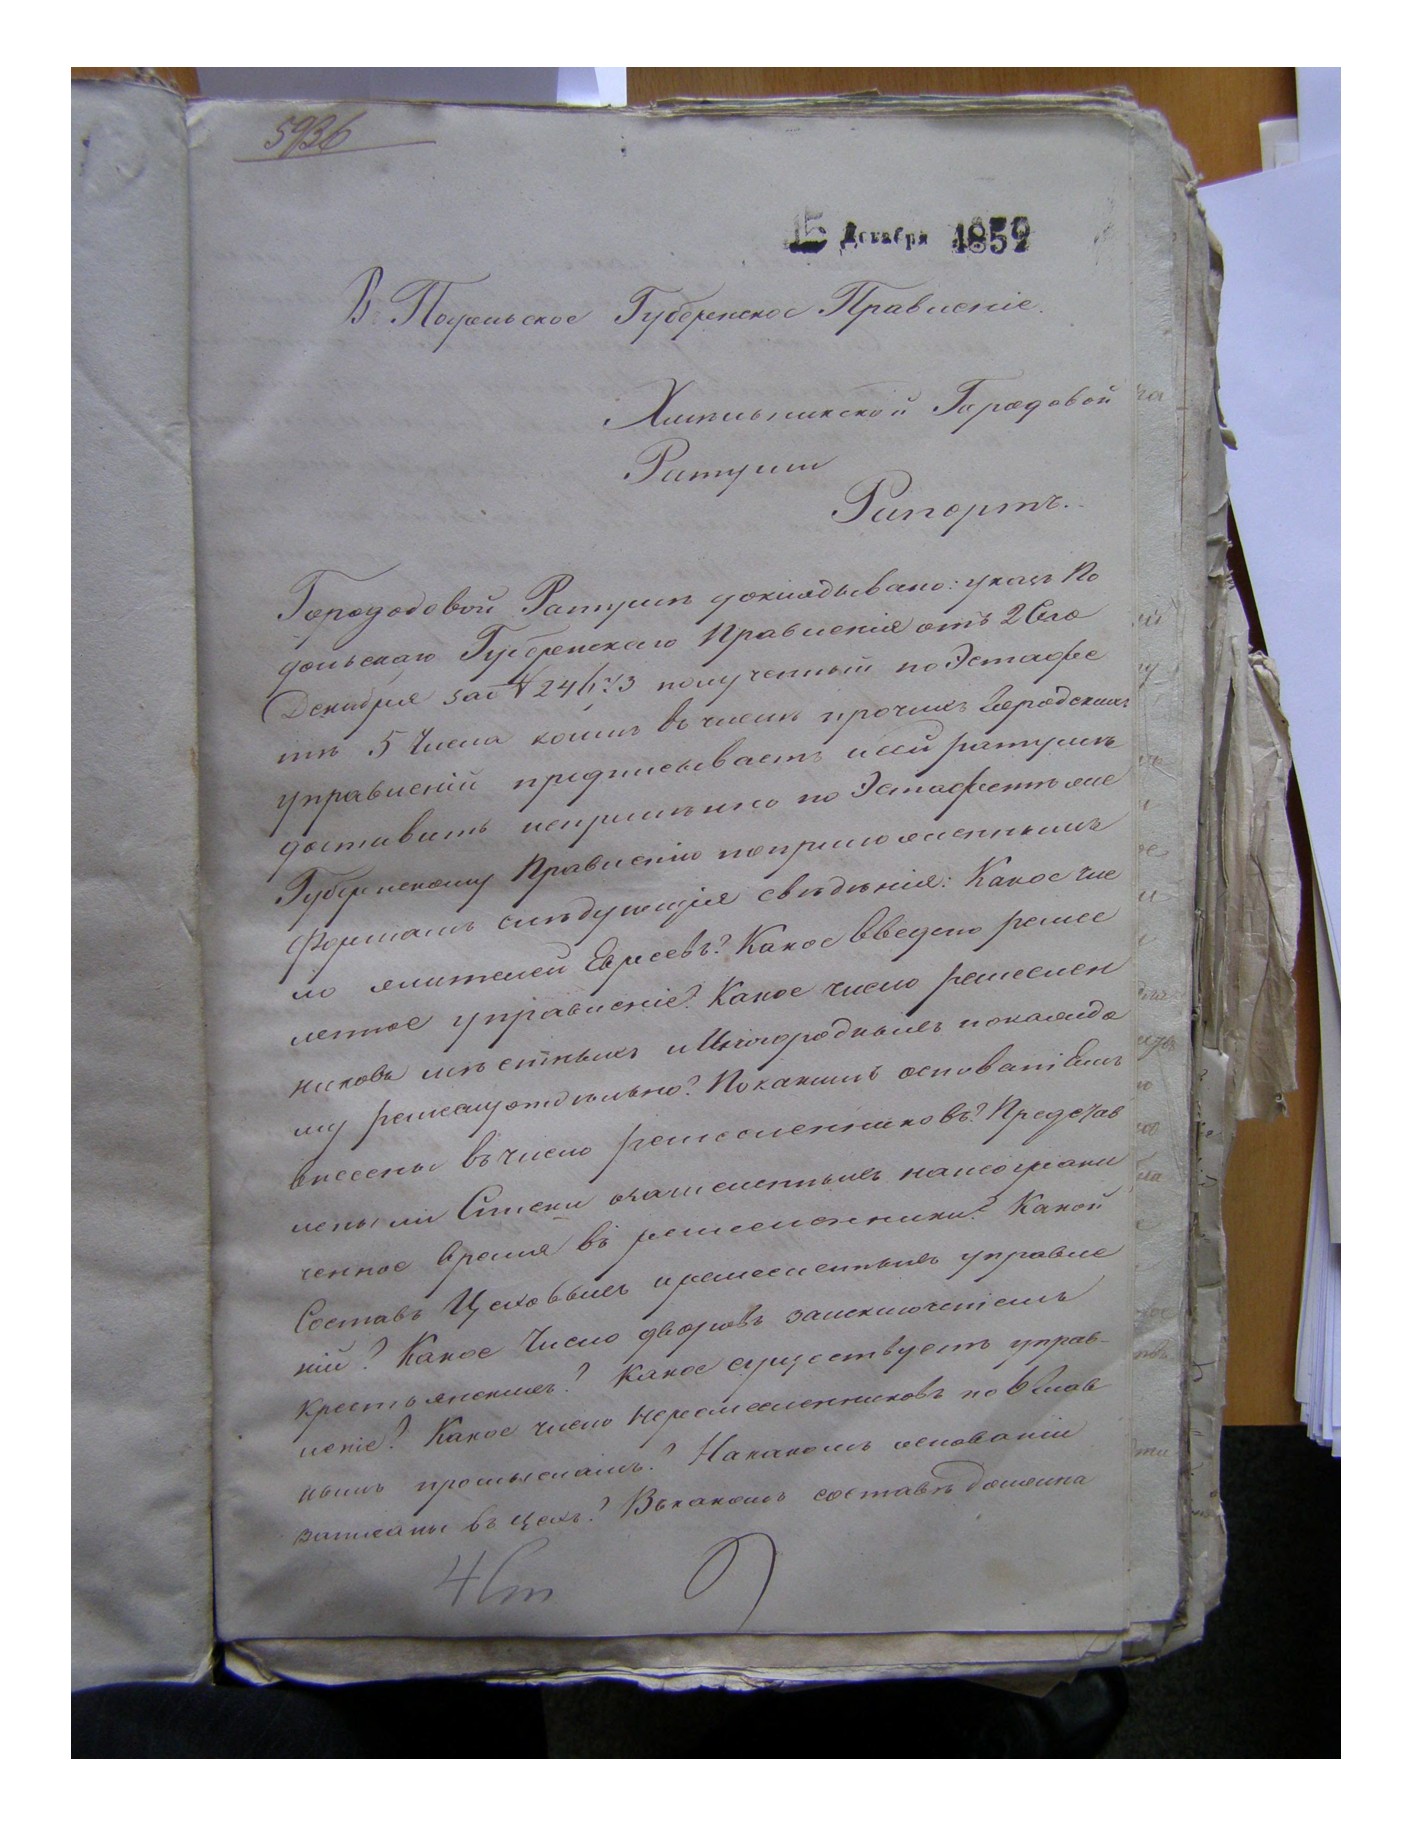 5936
15 Декабря 1859
В Подольское Губернское Правленіе.
Хмельникской Городовой
Ратуши
Рапортъ.
Городовой Ратуши докладывано: указъ По
дольскаго Губернскаго Правленія отъ 2го
Декабря за № полученный по Эстафе
тѣ 5 Числа коимъ въ числѣ прочихъ Городскихъ
управленій предписываетъ сей ратушѣ
доставить непремѣнно по Эстафетѣ же
Губернскому Правленію по приложеннымъ
Формамъ слѣдующія свѣдѣнія: Какое чис
ло жителей Евреевъ? Какое введено ремес
ленное управленіе? Какое число ремеслен
никовъ мѣстныхъ и Иногородныхъ по каждо
му ремеслу отдѣльно? По какимъ основаніямъ
внесены въ число ремесленниковъ? Представ
лены ли Списки зачисленныхъ на
ченное время въ ремесленники? Какой
Составъ Цеховыхъ и ремесленныхъ управле
ній? Какое Число дворовъ заисключеніемъ
крестьянскихъ? Какое существуетъ управ-
леніе? Какое число неремесленниковъ по глав
нымъ промысламъ? На какомъ основаніи
записаны въ цехъ? Въ какомъ составѣ должна